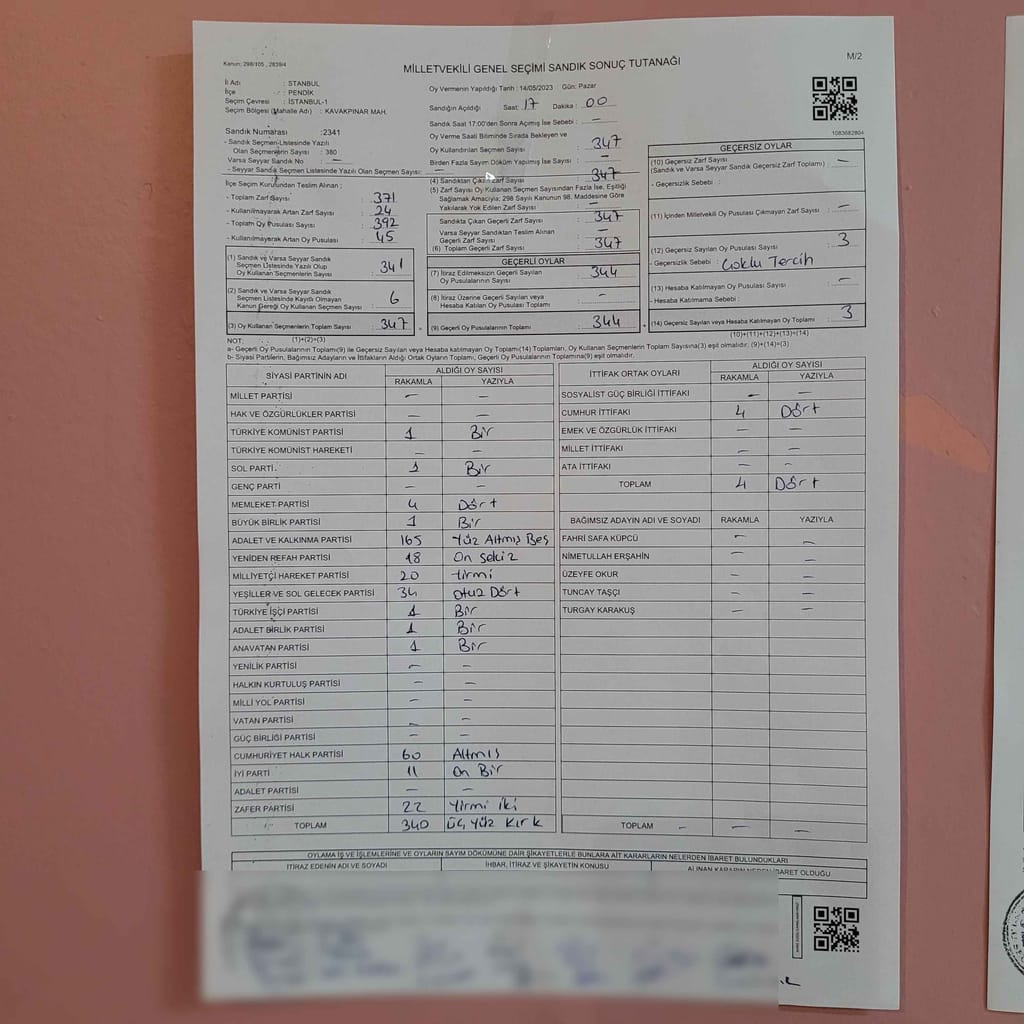 Kanun; 298/105 , 2839/4
M/2
MİLLETVEKİLİ GENEL SEÇİMİ SANDIK SONUÇ TUTANAĞI
İl Adı : STANBUL
İlçe : PENDİK
Seçim Çevresi : İSTANBUL-1
Seçim Bölgesi (Mahalle Adı) : KAVAKPINAR MAH.
Sandık Numarası :2341
- Sandık Seçmen Listesinde Yazılı
Olan Seçmenlerin Sayısı : 380
Varsa Seyyar Sandık No : —
- Seyyar Sandık Seçmen Listesinde Yazılı Olan Seçmen Sayısı: —
İlçe Seçim Kurulundan Teslim Alınan ;
- Toplam Zarf Sayısı : 371
- Kullanılmayarak Artan Zarf Sayısı : 24
- Toplam Oy Pusulası Sayısı : 392
- Kullanılmayarak Artan Oy Pusulası : 45
(1) Sandık ve Varsa Seyyar Sandık
Seçmen Listesinde Yazılı Olup
Oy Kullanan Seçmenlerin Sayısı : 341
(2) Sandık ve Varsa Seyyar Sandık
Seçmen Listesinde Kayıtlı Olmayan
Kanun Gereği Oy Kullanan Seçmen Sayısı : 6
(3) Oy Kullanan Seçmenlerin Toplam Sayısı : 347
Oy Vermenin Yapıldığı Tarih : 14/05/2023 Gün: Pazar
Sandığın Açıldığı Saat: 17 Dakika : 00
Sandık Saat 17:00'den Sonra Açılmış İse Sebebi : —
Oy Verme Saati Bitiminde Sırada Bekleyen ve
Oy Kullandırılan Seçmen Sayısı : 347
Birden Fazla Sayım Döküm Yapılmış İse Sayısı : —
(4) Sandıktan Çıkan Zarf Sayısı : 347
(5) Zarf Sayısı Oy Kullanan Seçmen Sayısından Fazla İse, Eşitliği
Sağlamak Amacıyla; 298 Sayılı Kanunun 98. Maddesine Göre
Yakılarak Yok Edilen Zarf Sayısı : —
Sandıkta Çıkan Geçerli Zarf Sayısı : 347
Varsa Seyyar Sandıktan Teslim Alınan
Geçerli Zarf Sayısı : —
(6) Toplam Geçerli Zarf Sayısı : 347
GEÇERLİ OYLAR
(7) İtiraz Edilmeksizin Geçerli Sayılan
Oy Pusulalarının Sayısı : 344
(8) İtiraz Üzerine Geçerli Sayılan veya
Hesaba Katılan Oy Pusulası Toplamı : —
(9) Geçerli Oy Pusulalarının Toplamı : 344
1083682804
GEÇERSİZ OYLAR
(10) Geçersiz Zarf Sayısı
(Sandık ve Varsa Seyyar Sandık Geçersiz Zarf Toplamı) : —
- Geçersizlik Sebebi :
(11) İçinden Milletvekili Oy Pusulası Çıkmayan Zarf Sayısı : —
(12) Geçersiz Sayılan Oy Pusulası Sayısı : 3
- Geçersizlik Sebebi : Çoklu Tercih
(13) Hesaba Katılmayan Oy Pusulası Sayısı : —
- Hesaba Katılmama Sebebi :
(14) Geçersiz Sayılan veya Hesaba Katılmayan Oy Toplamı : 3
NOT: (1)+(2)=(3) (10)+(11)+(12)+(13)=(14)
a- Geçerli Oy Pusulasının Toplamı(9) ile Geçersiz Sayılan veya Hesaba Katılmayan Oy Toplamı(14) Toplamları, Oy Kullanan Seçmenlerin Toplam Sayısına(3) eşit olmalıdır. (9)+(14)=(3)
b- Siyasi Partilerin, Bağımsız Adayların ve İttifakların Aldığı Ortak Oyların Toplamı, Geçerli Oy Pusulalarının Toplamına(9) eşit olmalıdır.
SİYASİ PARTİNİN ADI ALDIĞI OY SAYISI
RAKAMLA YAZIYLA
MİLLET PARTİSİ — —
HAK VE ÖZGÜRLÜKLER PARTİSİ — —
TÜRKİYE KOMÜNİST PARTİSİ 1 Bir
TÜRKİYE KOMÜNİST HAREKETİ — —
SOL PARTİ 1 Bir
GENÇ PARTİ — —
MEMLEKET PARTİSİ 4 Dört
BÜYÜK BİRLİK PARTİSİ 1 Bir
ADALET VE KALKINMA PARTİSİ 165 Yüz Altmış Beş
YENİDEN REFAH PARTİSİ 18 On Sekiz
MİLLİYETÇİ HAREKET PARTİSİ 20 Yirmi
YEŞİLLER VE SOL GELECEK PARTİSİ 34 Otuz Dört
TÜRKİYE İŞÇİ PARTİSİ 1 Bir
ADALET BİRLİK PARTİSİ 1 Bir
ANAVATAN PARTİSİ 1 Bir
YENİLİK PARTİSİ — —
HALKIN KURTULUŞ PARTİSİ — —
MİLLİ YOL PARTİSİ — —
VATAN PARTİSİ — —
GÜÇ BİRLİĞİ PARTİSİ — —
CUMHURİYET HALK PARTİSİ 60 Altmış
İYİ PARTİ 11 On Bir
ADALET PARTİSİ — —
ZAFER PARTİSİ 22 Yirmi İki
TOPLAM 340 Üç Yüz Kırk
İTTİFAK ORTAK OYLARI ALDIĞI OY SAYISI
RAKAMLA YAZIYLA
SOSYALİST GÜÇ BİRLİĞİ İTTİFAKI — —
CUMHUR İTTİFAKI 4 Dört
EMEK VE ÖZGÜRLÜK İTTİFAKI — —
MİLLET İTTİFAKI — —
ATA İTTİFAKI — —
TOPLAM 4 Dört
BAĞIMSIZ ADAYIN ADI VE SOYADI RAKAMLA YAZIYLA
FAHRİ SAFA KÜPCÜ — —
NİMETULLAH ERŞAHİN — —
ÜZEYFE OKUR — —
TUNCAY TAŞÇI — —
TURGAY KARAKUŞ — —
TOPLAM — — —
OYLAMA İŞ VE İŞLEMLERİNE VE OYLARIN SAYIM DÖKÜMÜNE DAİR ŞİKAYETLERLE BUNLARA AİT KARARLARIN NELERDEN İBARET BULUNDUKLARI
İTİRAZ EDENİN ADI VE SOYADI İHBAR, İTİRAZ VE ŞİKAYETİN KONUSU ALINAN KARARIN NEDEN İBARET OLDUĞU